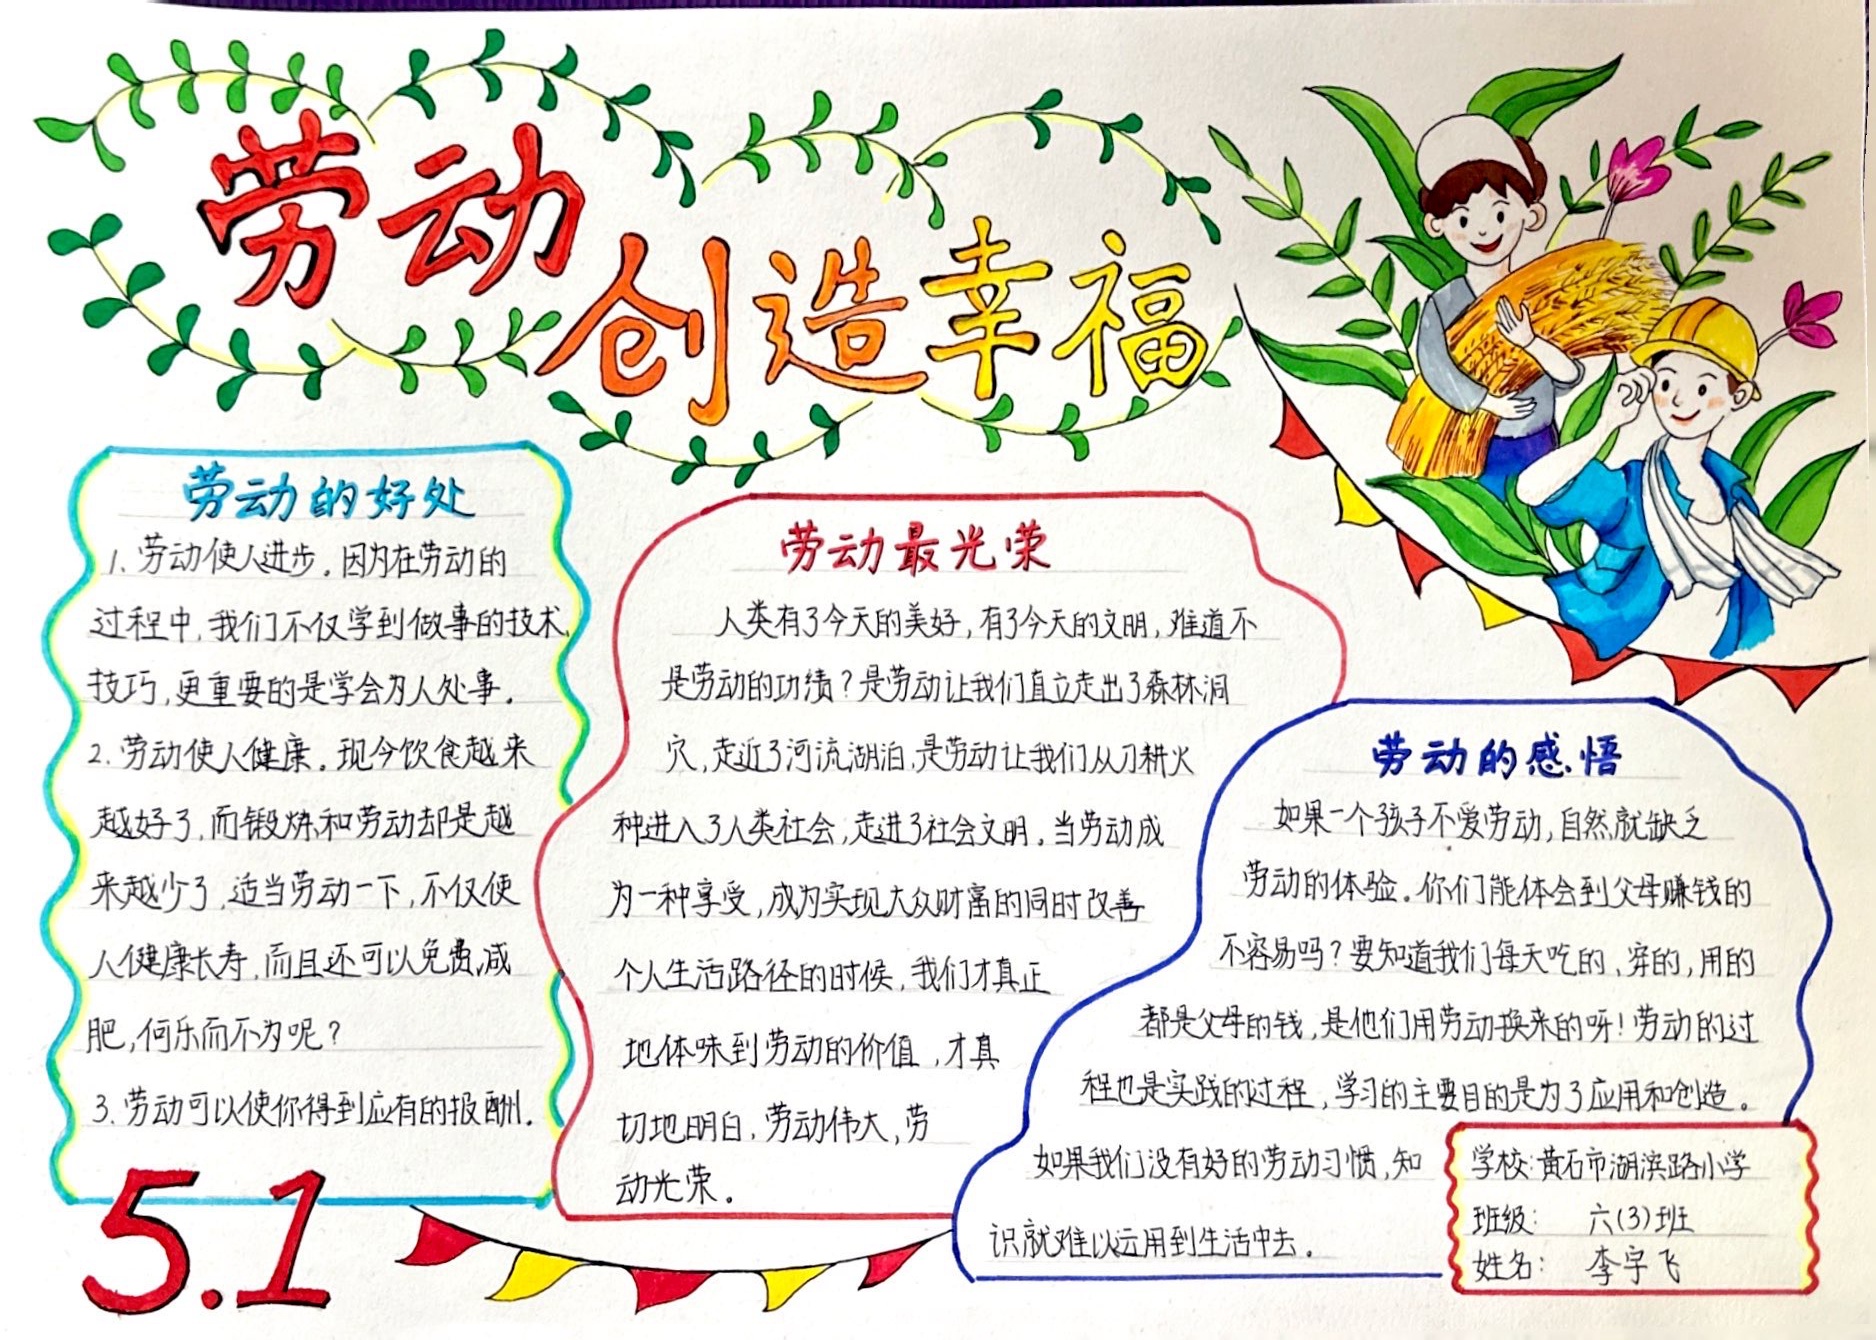 劳动
创造幸福
劳动的好处
1.劳动使人进步。因为在劳动的
过程中,我们不仅学到做事的技术、
技巧,更重要的是学会为人处事。
2.劳动使人健康。现今饮食越来
越好了,而锻炼和劳动却是越
来越少了,适当劳动一下,不仅使
人健康长寿,而且还可以免费减
肥,何乐而不为呢?
3.劳动可以使你得到应有的报酬.
5.1
劳动最光荣
人类有了今天的美好,有了今天的文明,难道不
是劳动的功绩?是劳动让我们直立走出了森林洞
穴,走近了河流湖泊,是劳动让我们从刀耕火
种进入了人类社会,走进了社会文明。当劳动成
为一种享受,成为实现大众财富的同时改善
个人生活路径的时候,我们才真正
地体味到劳动的价值,才真
切地明白,劳动伟大,劳
动光荣。
劳动的感悟
如果一个孩子不爱劳动,自然就缺乏
劳动的体验。你们能体会到父母赚钱的
不容易吗?要知道我们每天吃的、穿的,用的
都是父母的钱,是他们用劳动换来的呀!劳动的过
程也是实践的过程,学习的主要目的是为了应用和创造。
如果我们没有好的劳动习惯,知
识就难以运用到生活中去。
学校:黄石市湖滨路小学
班级: 六(3)班
姓名: 李宇飞